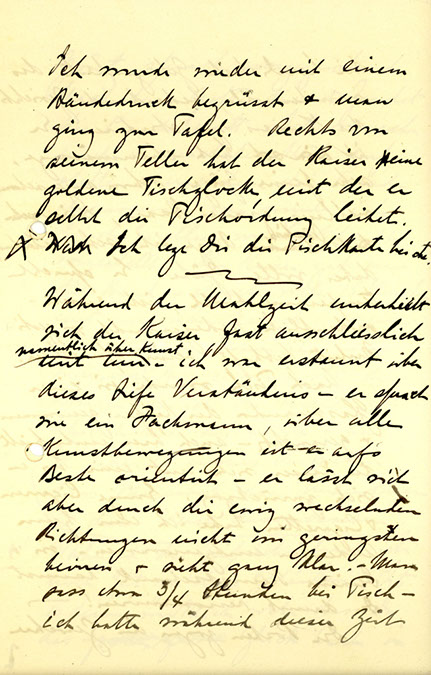 Ich wurde wieder mit einem
Händedruck begrüsst & man
ging zur Tafel. Rechts von
seinem Teller hat der Kaiser eine
goldene Tischglocke, mit der er
selbst die Tischordnung leitet.
Ich lege Dir die Tischkarte bei
Während der Mahlzeit unterhielt
sich der Kaiser fast ausschliesslich
namentlich über Kunst
mit mir - ich war erstaunt über
dieses tiefe Verständnis - er sprach
wie ein Fachmann, über alle
Kunstbewegungen ist er aufs
Beste orientiert - er lässt sich
aber durch die ewig wechselnden
Richtungen nicht im geringsten
beirren & sieht ganz klar. - Man
sass etwa 3/4 Stunden bei Tisch -
ich hatte während dieser Zeit